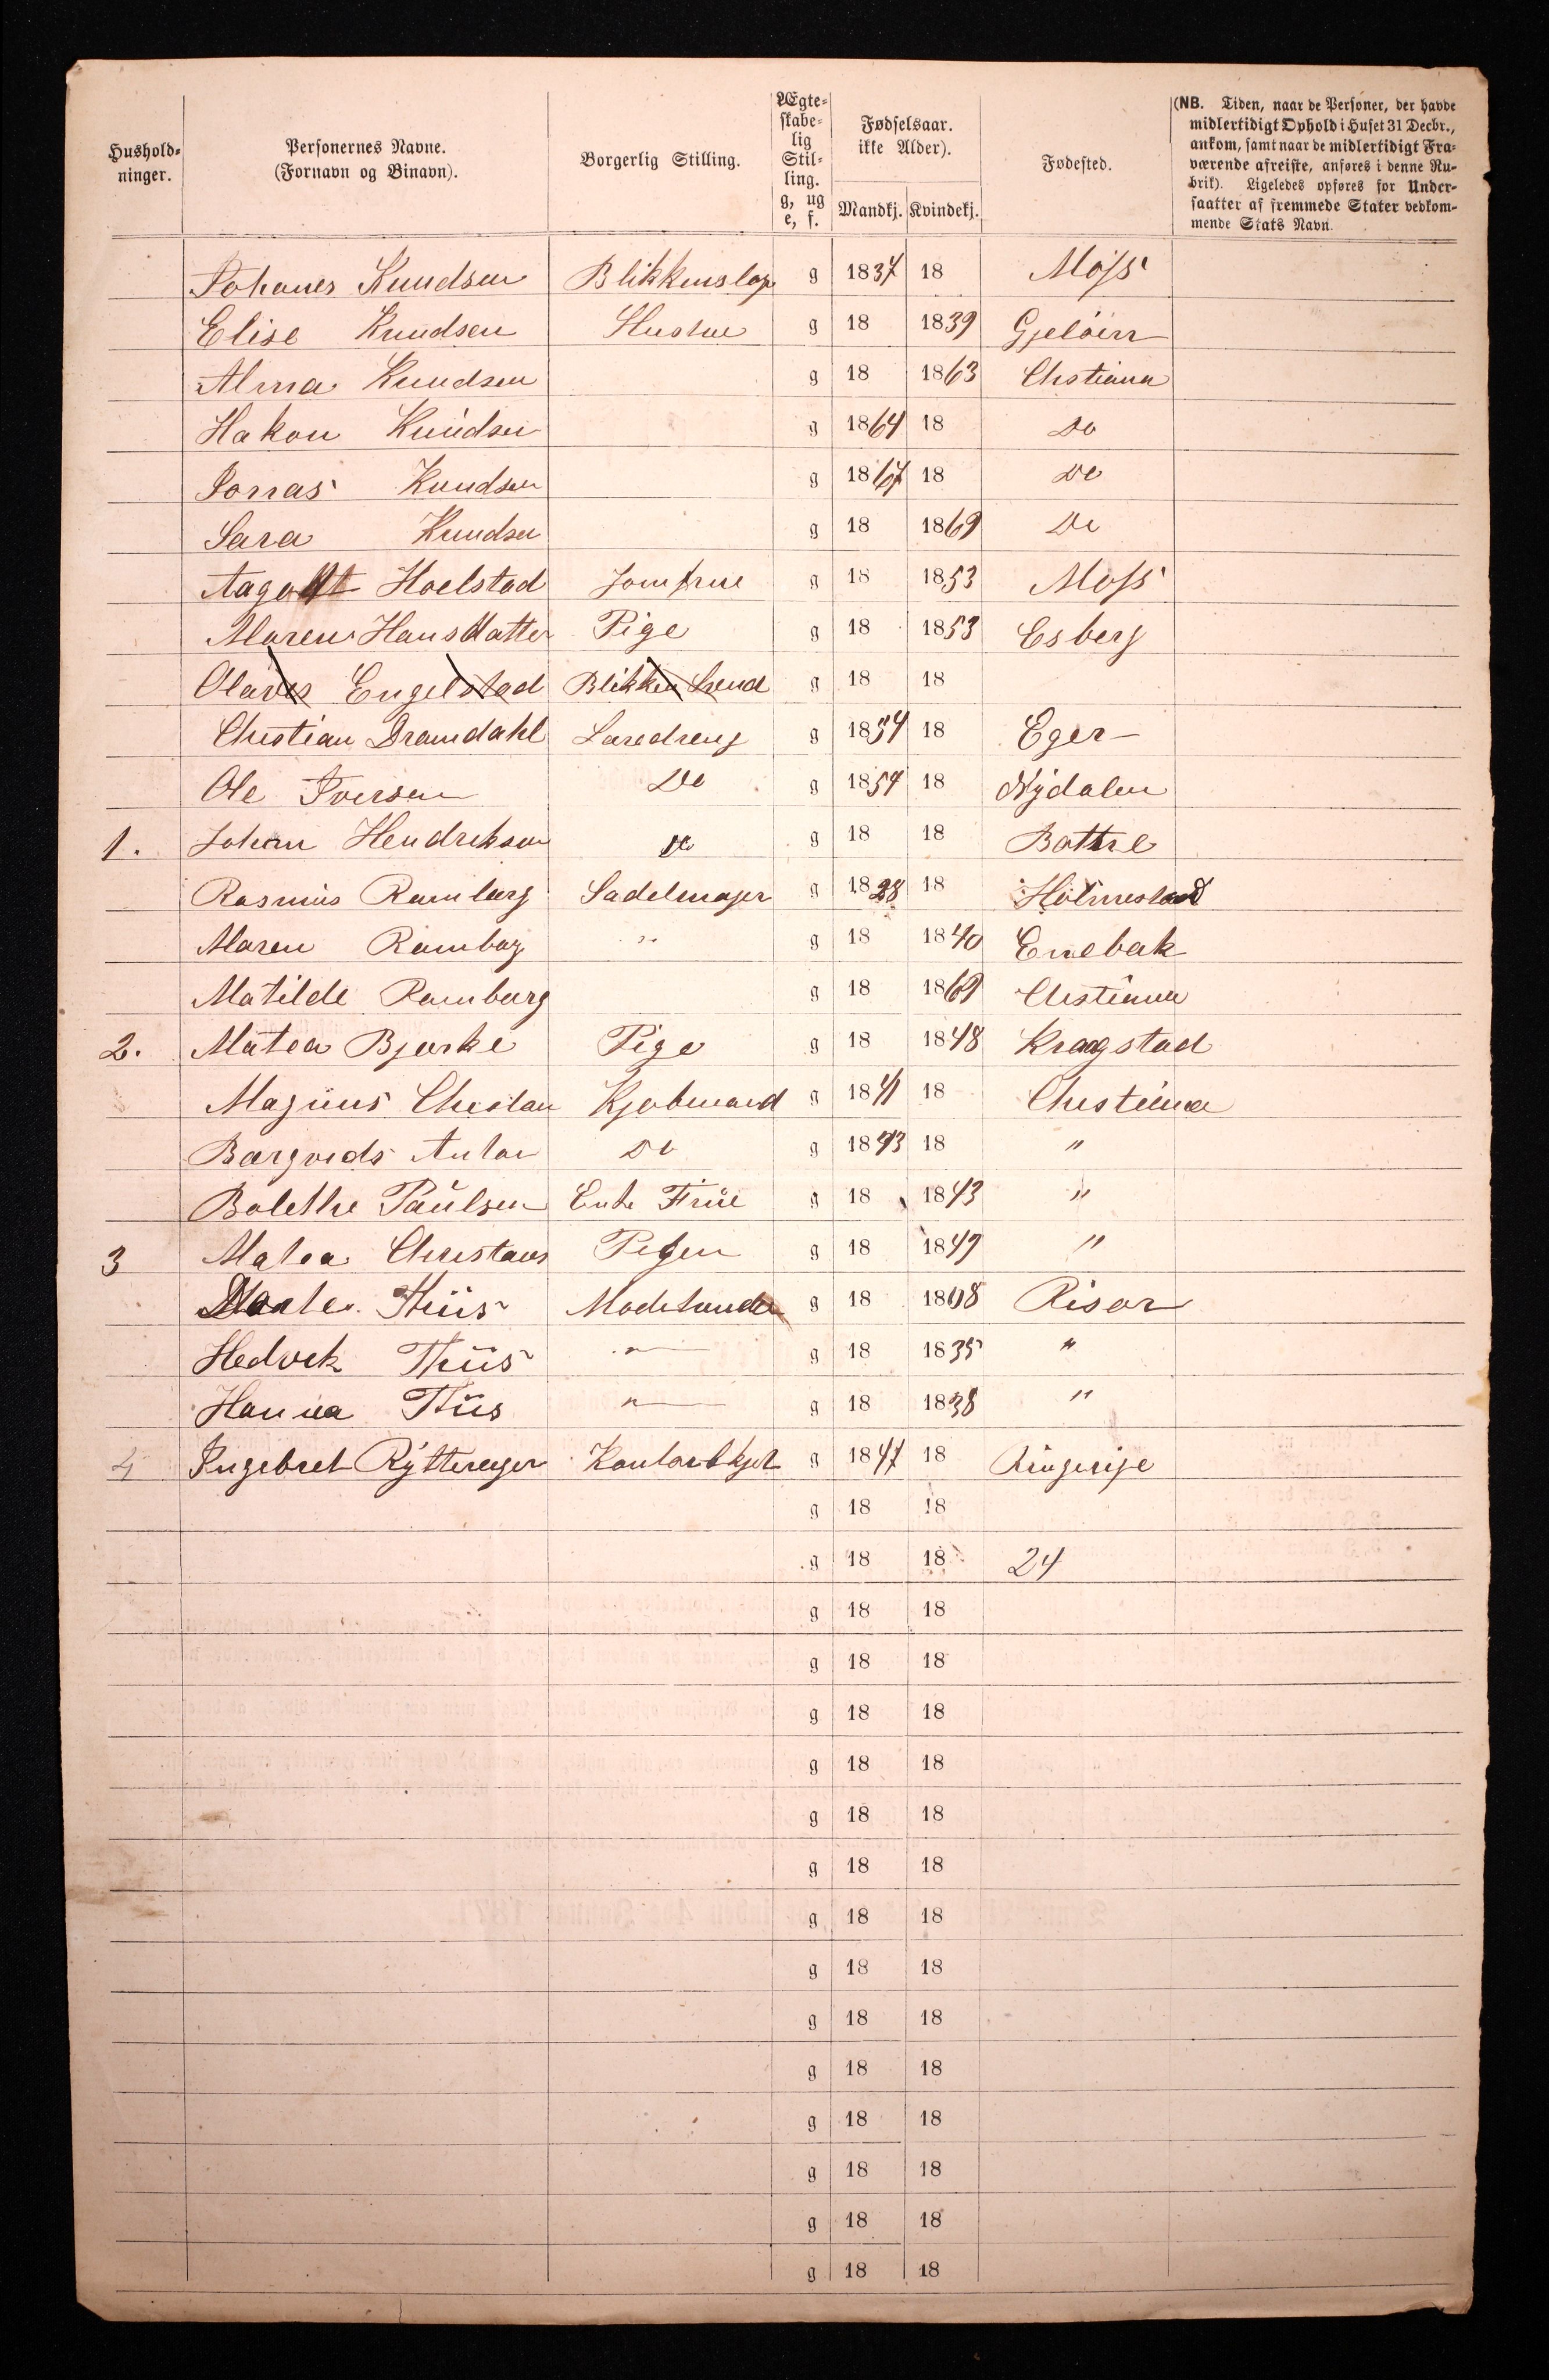 Hushold-
ninger.
Personernes Navne.
(Fornavn og Binavn).
Borgerlig Stilling.
Ægte-
skabe-
lig
Stil-
ling.
g, ug
e, f.
Fødselsaar.
ikke Alder).
Mandkj. Kvindekj.
Fødested.
(NB. Tiden, naar de Personer, der havde
midlertidigt Ophold i Huset 31 Decbr.,
ankom, samt naar de midlertidigt Fra-
værende afreiste, anføres i denne Ru-
brik). Ligeledes opføres for Under-
saatter af fremmede Stater vedkom-
mende Stats Navn.
Johanes Knudsen Blikkenslag g 1837 18 Moss
Elise Knudsen Hustue g 18 1839 Gjelöen
Alma Knudsen g 18 1863 Chstiana
Hakon Knudsen g 1864 18 Do
Jonas Knudsen g 1867 18 Do
Sara Knudsen g 18 1869 Do
Hoelstad Jomfrue g 18 1853 Moss
Maren Hansdatter Pige g 18 1853 Esberg
Olaves Engelstad Blikken Svend g 18 18
Chrstian Dramdahl Laredreng g 1854 18 Eger
Ole Iversen Do g 1854 18 Nydalen
1. Johan Hendriksen Do g 18 18
Rasmus Ramberg Sadelmager g 1828 18 Holmestad
Maren Ramberg " g 18 1840 Enebak
Matilde Ramberg g 18 1869 Chstiania
2. Matea Bjerke Pige g 18 1848 Kragstad
Magnus Chrstan Kjobmand g 1841 18 Chrstiania
Anton Do g 1843 18 "
Bolethe Paulsen Enke Frue g 18 1843 "
3 Matea Chrestans Pigen g 18 1849 "
Thiis g 18 18 Risør
Hedvek Thiis " g 18 1835 "
Hanna Thiis " g 18 1838 "
4 Ingebret Rytterager g 1847 18 Ringerige
g 18 18
g 18 18 24
g 18 18
g 18 18
g 18 18
g 18 18
g 18 18
g 18 18
g 18 18
g 18 18
g 18 18
g 18 18
g 18 18
g 18 18
g 18 18
g 18 18